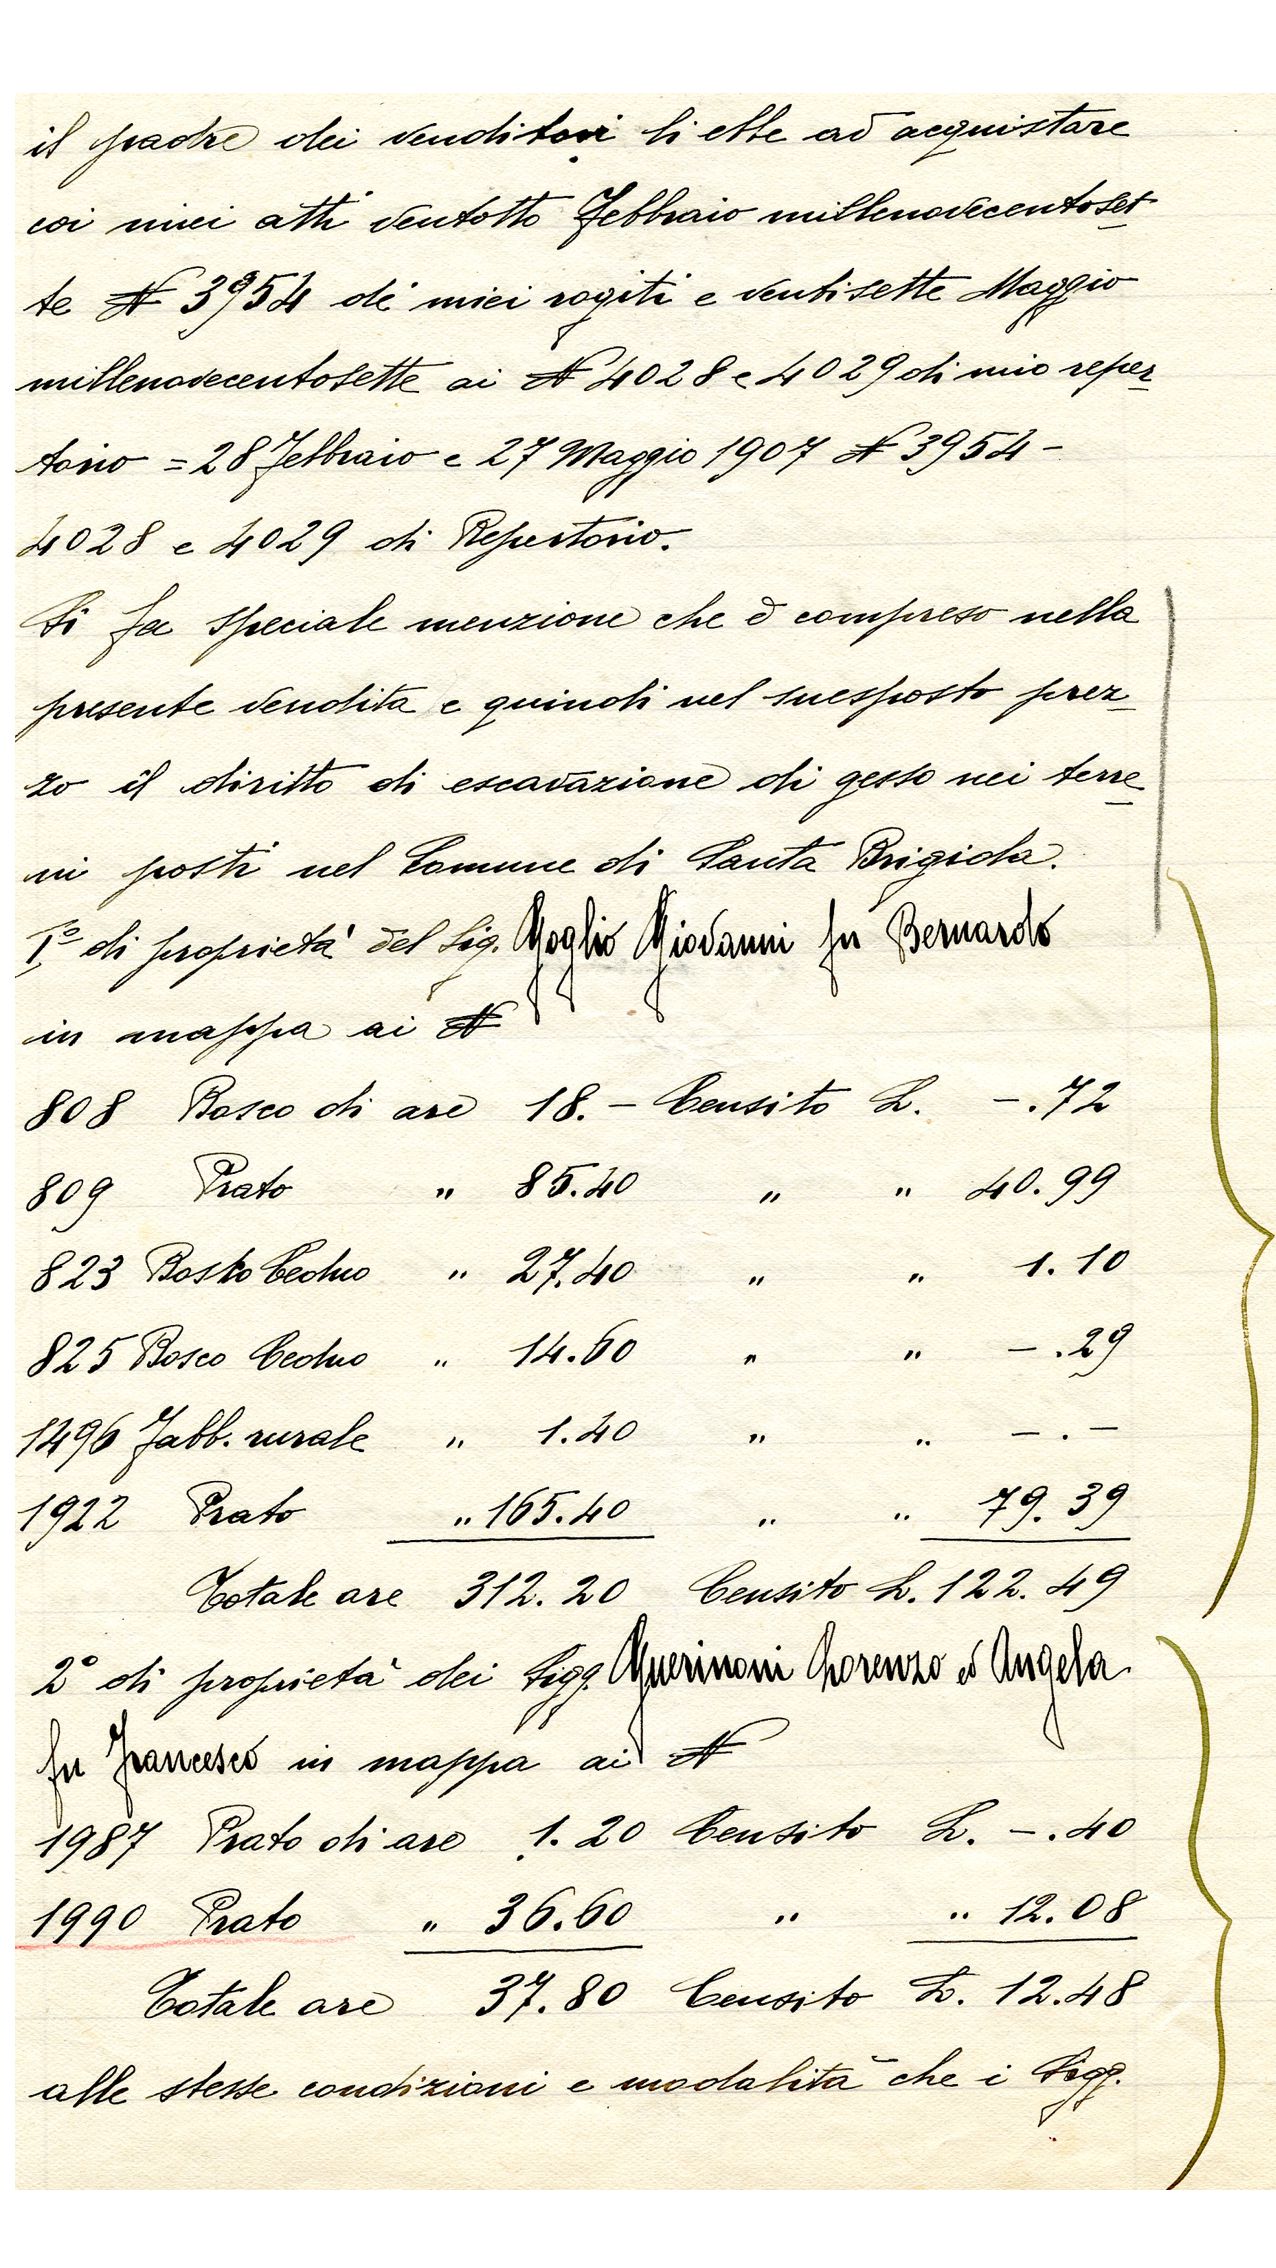 il padre dei venditori li ebbe ad acquistare
coi miei atti ventotto Febbraio millenovecentoset
te N 3954 de' miei rogiti e ventisette Maggio
millenovecentosette ai N 4028 e 4029 di mio reper
torio = 28 Febbraio e 27 Maggio 1907 N 3954 -
4028 e 4029 di Repertorio.
Si fa speciale menzione che è compreso nella
presente vendita e quindi nel suesposto prez
zo il diritto di escavazione di gesso nei terre
ni posti nel Comune di Santa Brigida.
1º di proprietà del Sig. Goglio Giovanni fu Bernardo
in mappa ai N
808 Bosco di are 18. - Censito L. -.72
809 Prato " 85.40 " " 40.99
823 Bosko Ceduo " 27.40 " " 1.10
825 Bosco Ceduo " 14.60 " " -.29
1496 Fabb. rurale " 1.40 " " -.-
1922 Prato " 165.40 " " 79.39
Totale are 312.20 Censito L. 122.49
2º di proprietà dei Sigg. Guerinoni Lorenzo ed Angela
fu Francesco in mappa ai N
1987 Prato di are 1.20 Censito L. -.40
1990 Prato " 36.60 " " 12.08
Totale are 37.80 Censito L. 12.48
alle stesse condizioni e modalità che i Sigg.